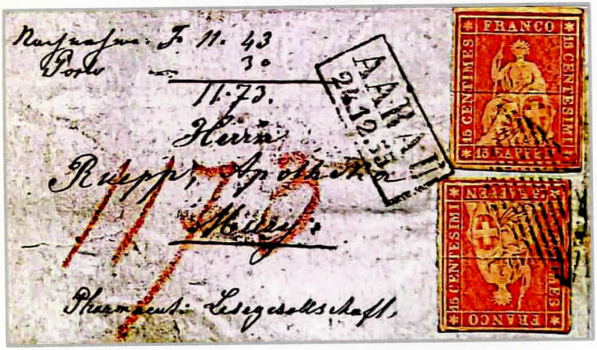 Nachnahme: F. 11. 43
Porto — 30
11.73.
Herrn
Ruepp, Apotheker
Mury.
1173
Pharmaceut: Lesegesellschaft,
AARAU
24.12.
FRANCO
15 CENTIMES
15 CENTESIMI
15 RAPPEN
15 RAPPEN
15 CENTESIMI
15 CENTIMES
FRANCO